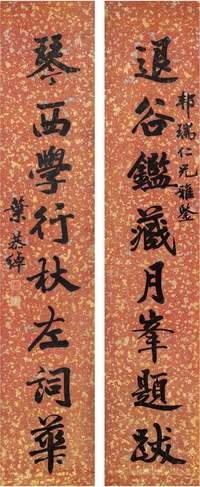 邦瑞仁兄雅鉴
退谷鑑藏月峯題跋
琴西學行杕左詞華
葉恭綽